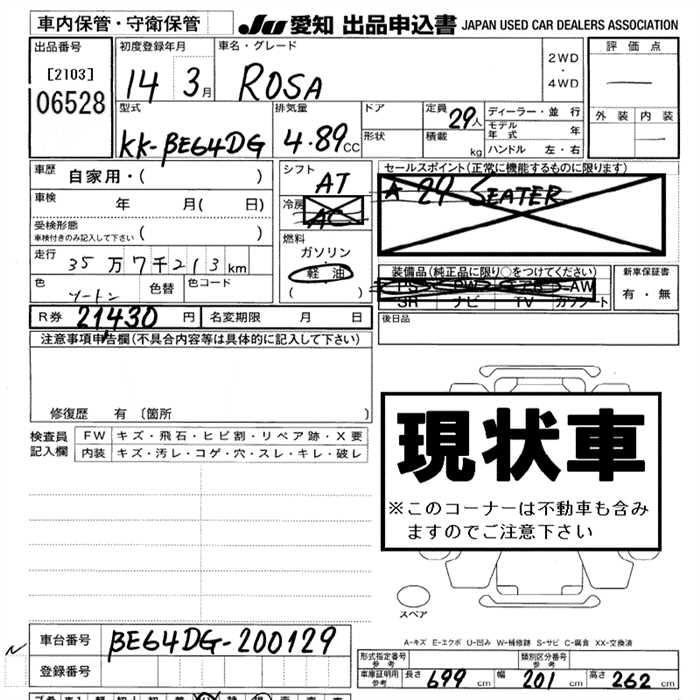 車内保管・守衛保管
JU 愛知 出品申込書 JAPAN USED CAR DEALERS ASSOCIATION
出品番号
[2103]
06528
初度登録年月
14 3月
車名・グレード
ROSA
2WD
・
4WD
評価点
―
外装 内装
―
型式
KK-BE64DG
排気量
4.89CC
ドア
形状
定員 29人
積載 kg
ディーラー・並行
モデル年式 年
ハンドル 左・右
車歴 自家用・( )
車検 年 月( 日)
受検形態
車検付きのみ記入して下さい ( )
走行 35万7千213km
色 ツートン 色替 色コード
R券 21430円 名変期限 月 日
シフト
AT
冷房
AC
燃料
ガソリン・
軽油
( )
セールスポイント(正常に機能するものに限ります)
A 29 SEATER
装備品(純正品に限り○をつけてください)
PS PW AW
SR ナビ TV カセット
新車保証書
有・無
後日品
注意事項申告欄(不具合内容等は具体的に記入して下さい)
修復歴 有〔箇所 〕
検査員
記入欄
FW キズ・飛石・ヒビ割・リペア跡・X要
内装 キズ・汚レ・コゲ・穴・スレ・キレ・破レ
現状車
※このコーナーは不動車も含み
ますのでご注意下さい
スペア
A-キズ E-エクボ U-凹み W-補修跡 S-サビ C-腐食 XX-交換済
車台番号 BE64DG-200129
登録番号
形式指定番号
参考
類別区分番号
参考
車庫証明用
参考
長さ 699cm 幅 201cm 高さ 262cm